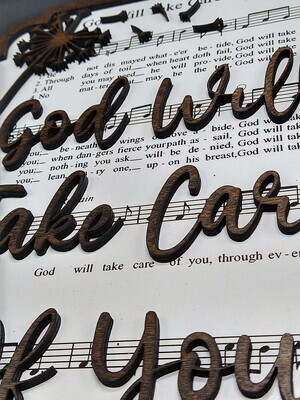 God Will Take Care
not dis mayed what-e'er be-tide, God will take
2. Through days of toil when heart doth fail, God will take
3. All you may need he will pro-vide, God will take
No mat-ter what may be God will take
God Will
you, be-neath wings of love a-bide, God will take
you; when dan-gers fierce your path as-sail, God will take
you; noth-ing you ask will be de-nied, God will take
you; lean, ry one, up-on his breast, God will take
Take Care
God will take care of you, through ev-er
Of You